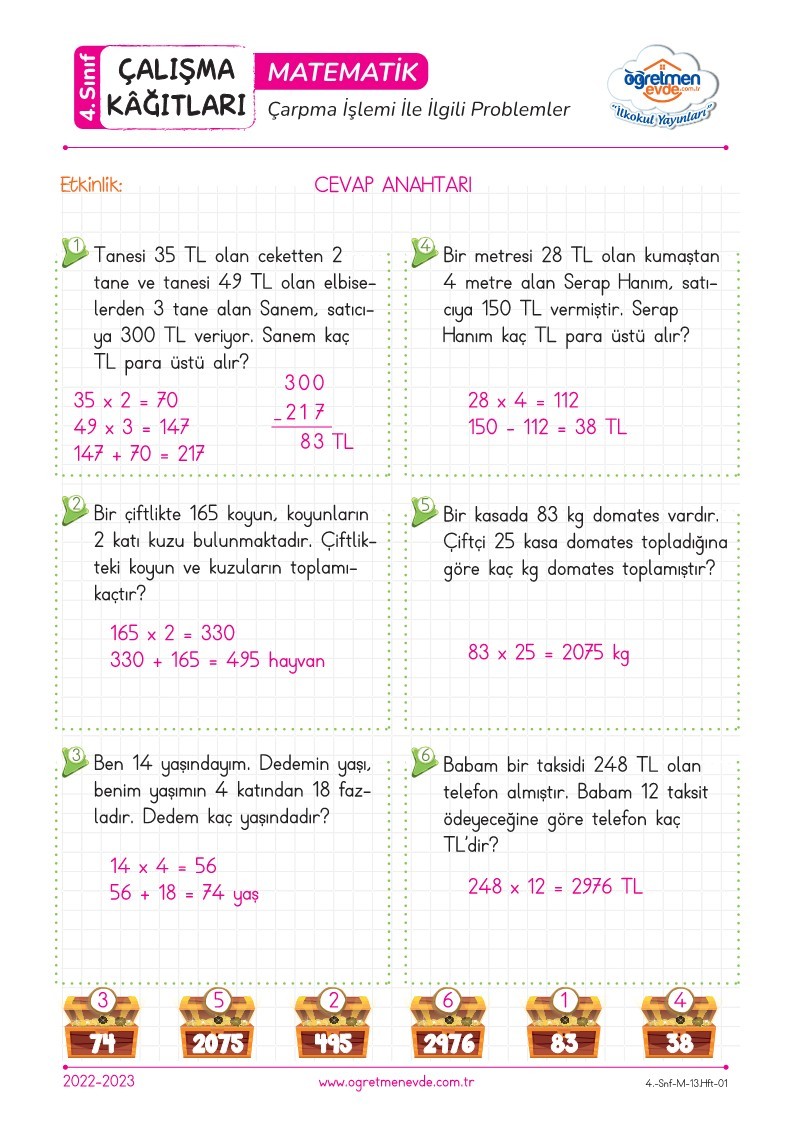 4. Sınıf
ÇALIŞMA
KÂĞITLARI
MATEMATİK
Çarpma İşlemi İle İlgili Problemler
öğretmen
evde.com.tr
"İlkokul Yayınları"
Etkinlik:
CEVAP ANAHTARI
1
Tanesi 35 TL olan ceketten 2
tane ve tanesi 49 TL olan elbise-
lerden 3 tane alan Sanem, satıcı-
ya 300 TL veriyor. Sanem kaç
TL para üstü alır?
35 x 2 = 70
49 x 3 = 147
147 + 70 = 217
300
- 217
83 TL
2
Bir çiftlikte 165 koyun, koyunların
2 katı kuzu bulunmaktadır. Çiftlik-
teki koyun ve kuzuların toplamı-
kaçtır?
165 x 2 = 330
330 + 165 = 495 hayvan
3
Ben 14 yaşındayım. Dedemin yaşı,
benim yaşımın 4 katından 18 faz-
ladır. Dedem kaç yaşındadır?
14 x 4 = 56
56 + 18 = 74 yaş
4
Bir metresi 28 TL olan kumaştan
4 metre alan Serap Hanım, satı-
cıya 150 TL vermiştir. Serap
Hanım kaç TL para üstü alır?
28 x 4 = 112
150 - 112 = 38 TL
5
Bir kasada 83 kg domates vardır.
Çiftçi 25 kasa domates topladığına
göre kaç kg domates toplamıştır?
83 x 25 = 2075 kg
6
Babam bir taksidi 248 TL olan
telefon almıştır. Babam 12 taksit
ödeyeceğine göre telefon kaç
TL'dir?
248 x 12 = 2976 TL
3 5 2 6 1 4
74 2075 495 2976 83 38
2022-2023
www.ogretmenevde.com.tr
4.-Snf-M-13.Hft-01